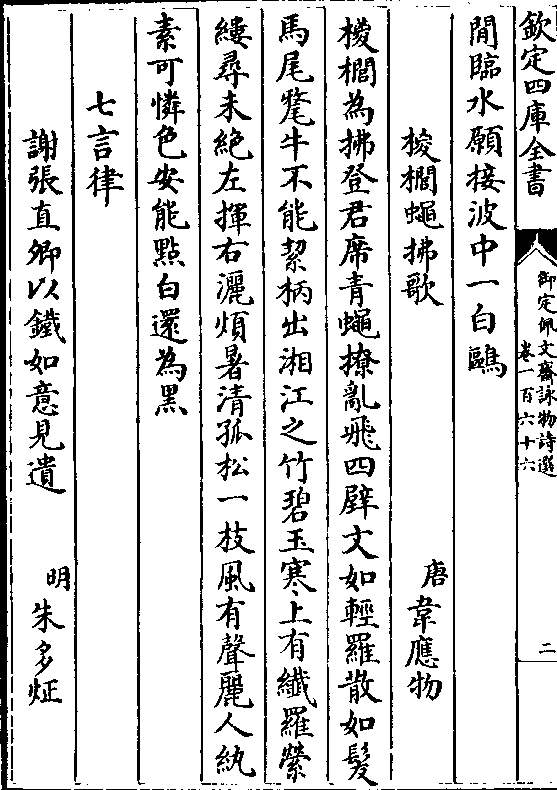 欽定四庫全書
御定佩文齋詠物詩選
卷一百六十六
二
閒臨水願接波中一白鷗
椶櫚蠅拂歌
唐
韋應物
椶櫚為拂登君席青蠅撩亂飛四壁文如輕羅散如髮
馬尾氂牛不能絜柄出湘江之竹碧玉寒上有纖羅縈
縷尋未絶左揮右灑煩暑清孤松一枝風有聲麗人紈
素可憐色安能點白還為黑
七言律
謝張直卿以鐵如意見遺
明
朱多炡